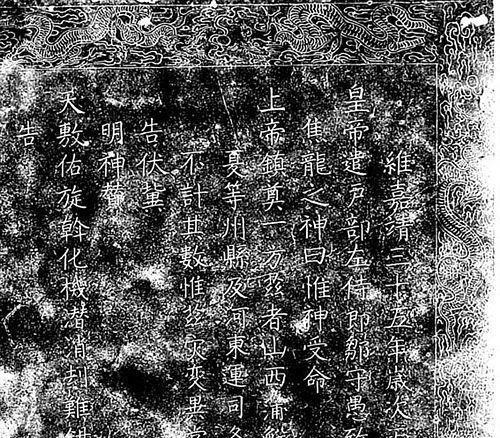 維嘉靖三十五年歲次
皇帝遣戶部左侍郎鄒守愚致
龍之神曰惟神受命
上帝鎮奠一方茲者山西蒲解
夏等州縣及河東運司各
不計其數惟茲災變異常
告伏冀
明神
大敷佑旋斡化機潛消刦難
告